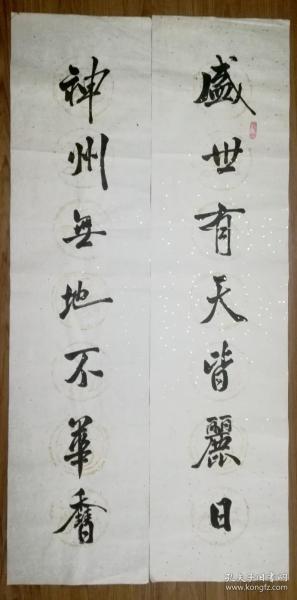 盛世有天皆麗日
神州無地不華香
孔夫子旧书网